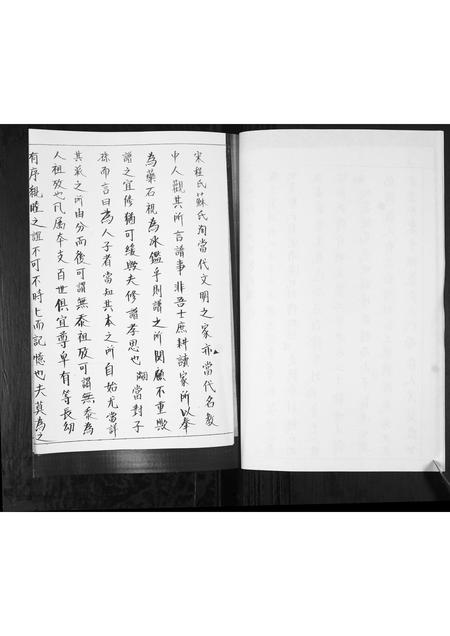 宋程氏蘇氏洵當代文明之家亦當代名教
中人觀其所言譜事非吾士庶科讀家所以奉
為藥石視為冰鑑乎則譜之所関顧不重歟
譜之宜修猶可緩歟夫修譜孝思也 嘗對子
孫而言曰為人子者當知其本之所自始尤當詳
其氣之所由分而後可謂無忝祖孜可謂無忝為
人祖孜也凡属本支百世俱宜尊卑有等長幼
有序親睦之誼不可不時匕而記憶也夫莫為之